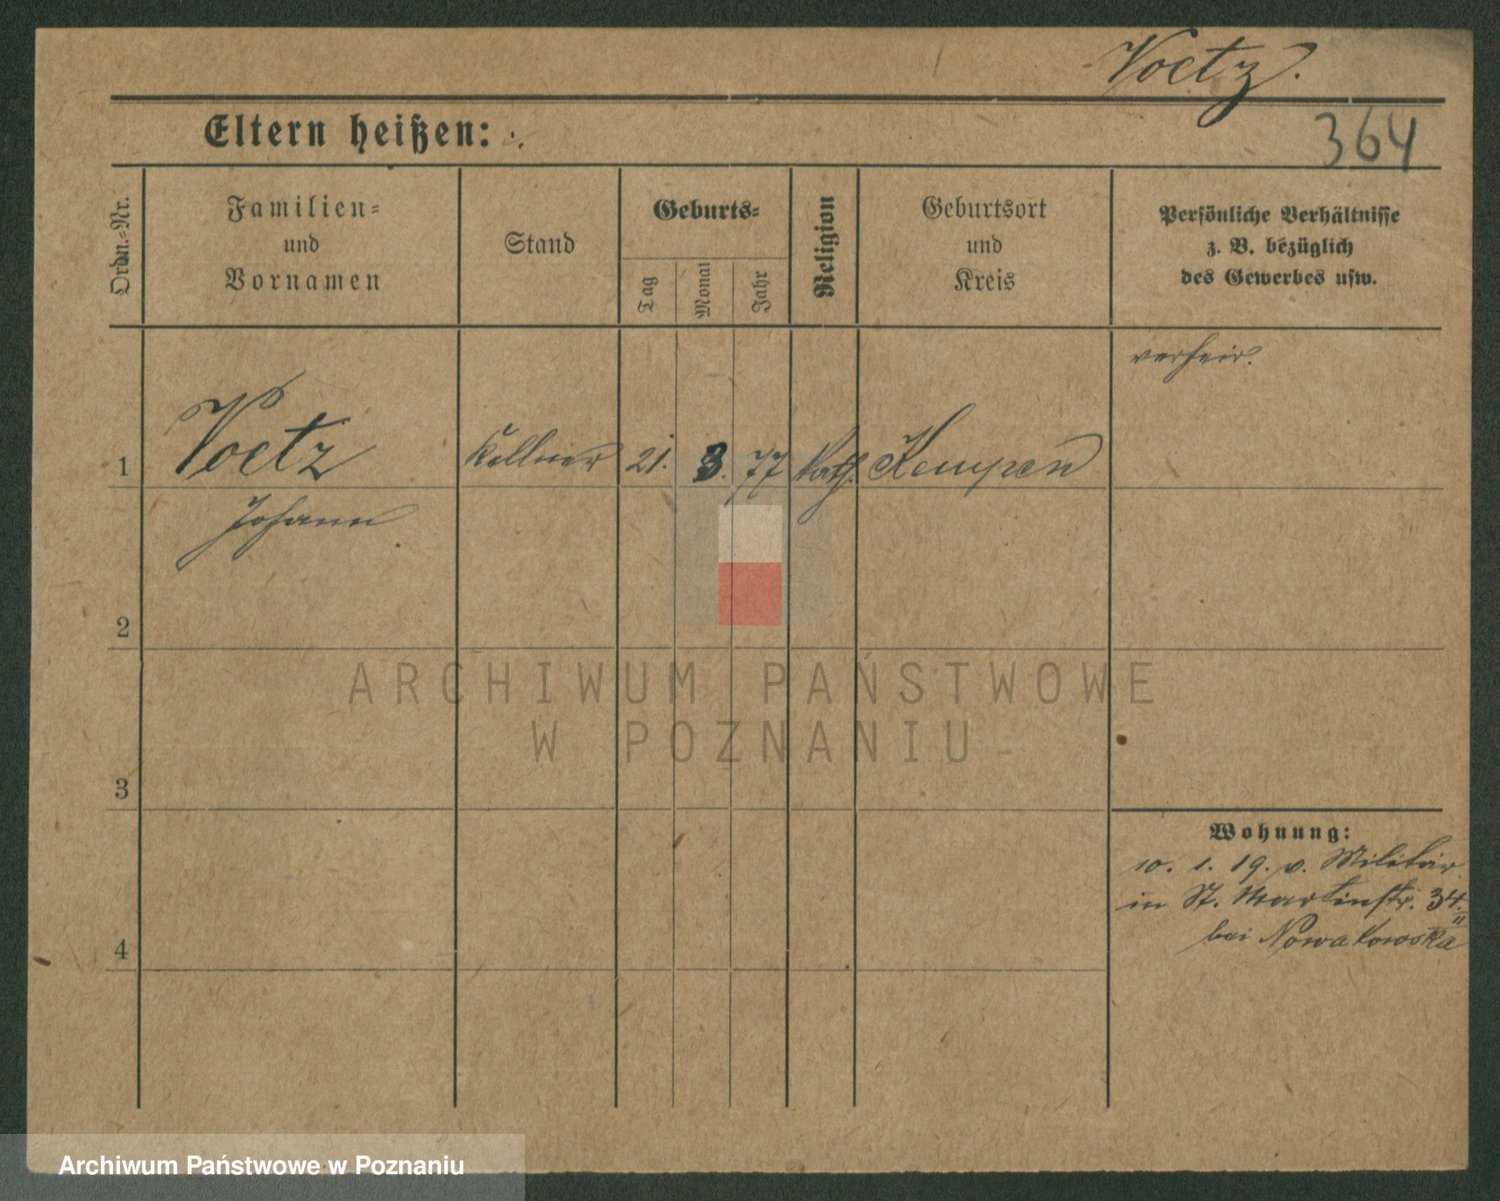 Voetz.
364
Eltern heißen:
Ordn.-Nr.
Familien-
und
Vornamen
Stand
Geburts-
Tag
Monat
Jahr
Religion
Geburtsort
und
Kreis
Persönliche Verhältnisse
z. B. bezüglich
des Gewerbes usw.
verheir.
1 Voetz Kellner 21. 3. 77 kath. Kempen
Johann
2
3
4
Wohnung:
10. 1. 19. v. Militär
in St. Martinstr. 34.
II
bei Nowakowska
ARCHIWUM PAŃSTWOWE
W POZNANIU
Archiwum Państwowe w Poznaniu